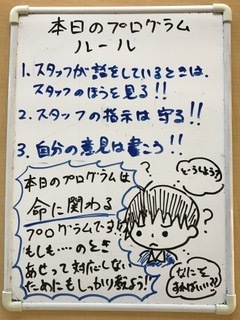 本日のプログラム
ルール
1. スタッフが話をしているときは、
スタッフのほうを見る!!
2. スタッフの指示は守る!!
3. 自分の意見は書こう!!
本日のプログラムは
命に関わる
プログラムです。
もしも…のとき
あせって対応しない
ためにもしっかり考えよう!
どうしよう?
なにを
すればいい??
?
?
?